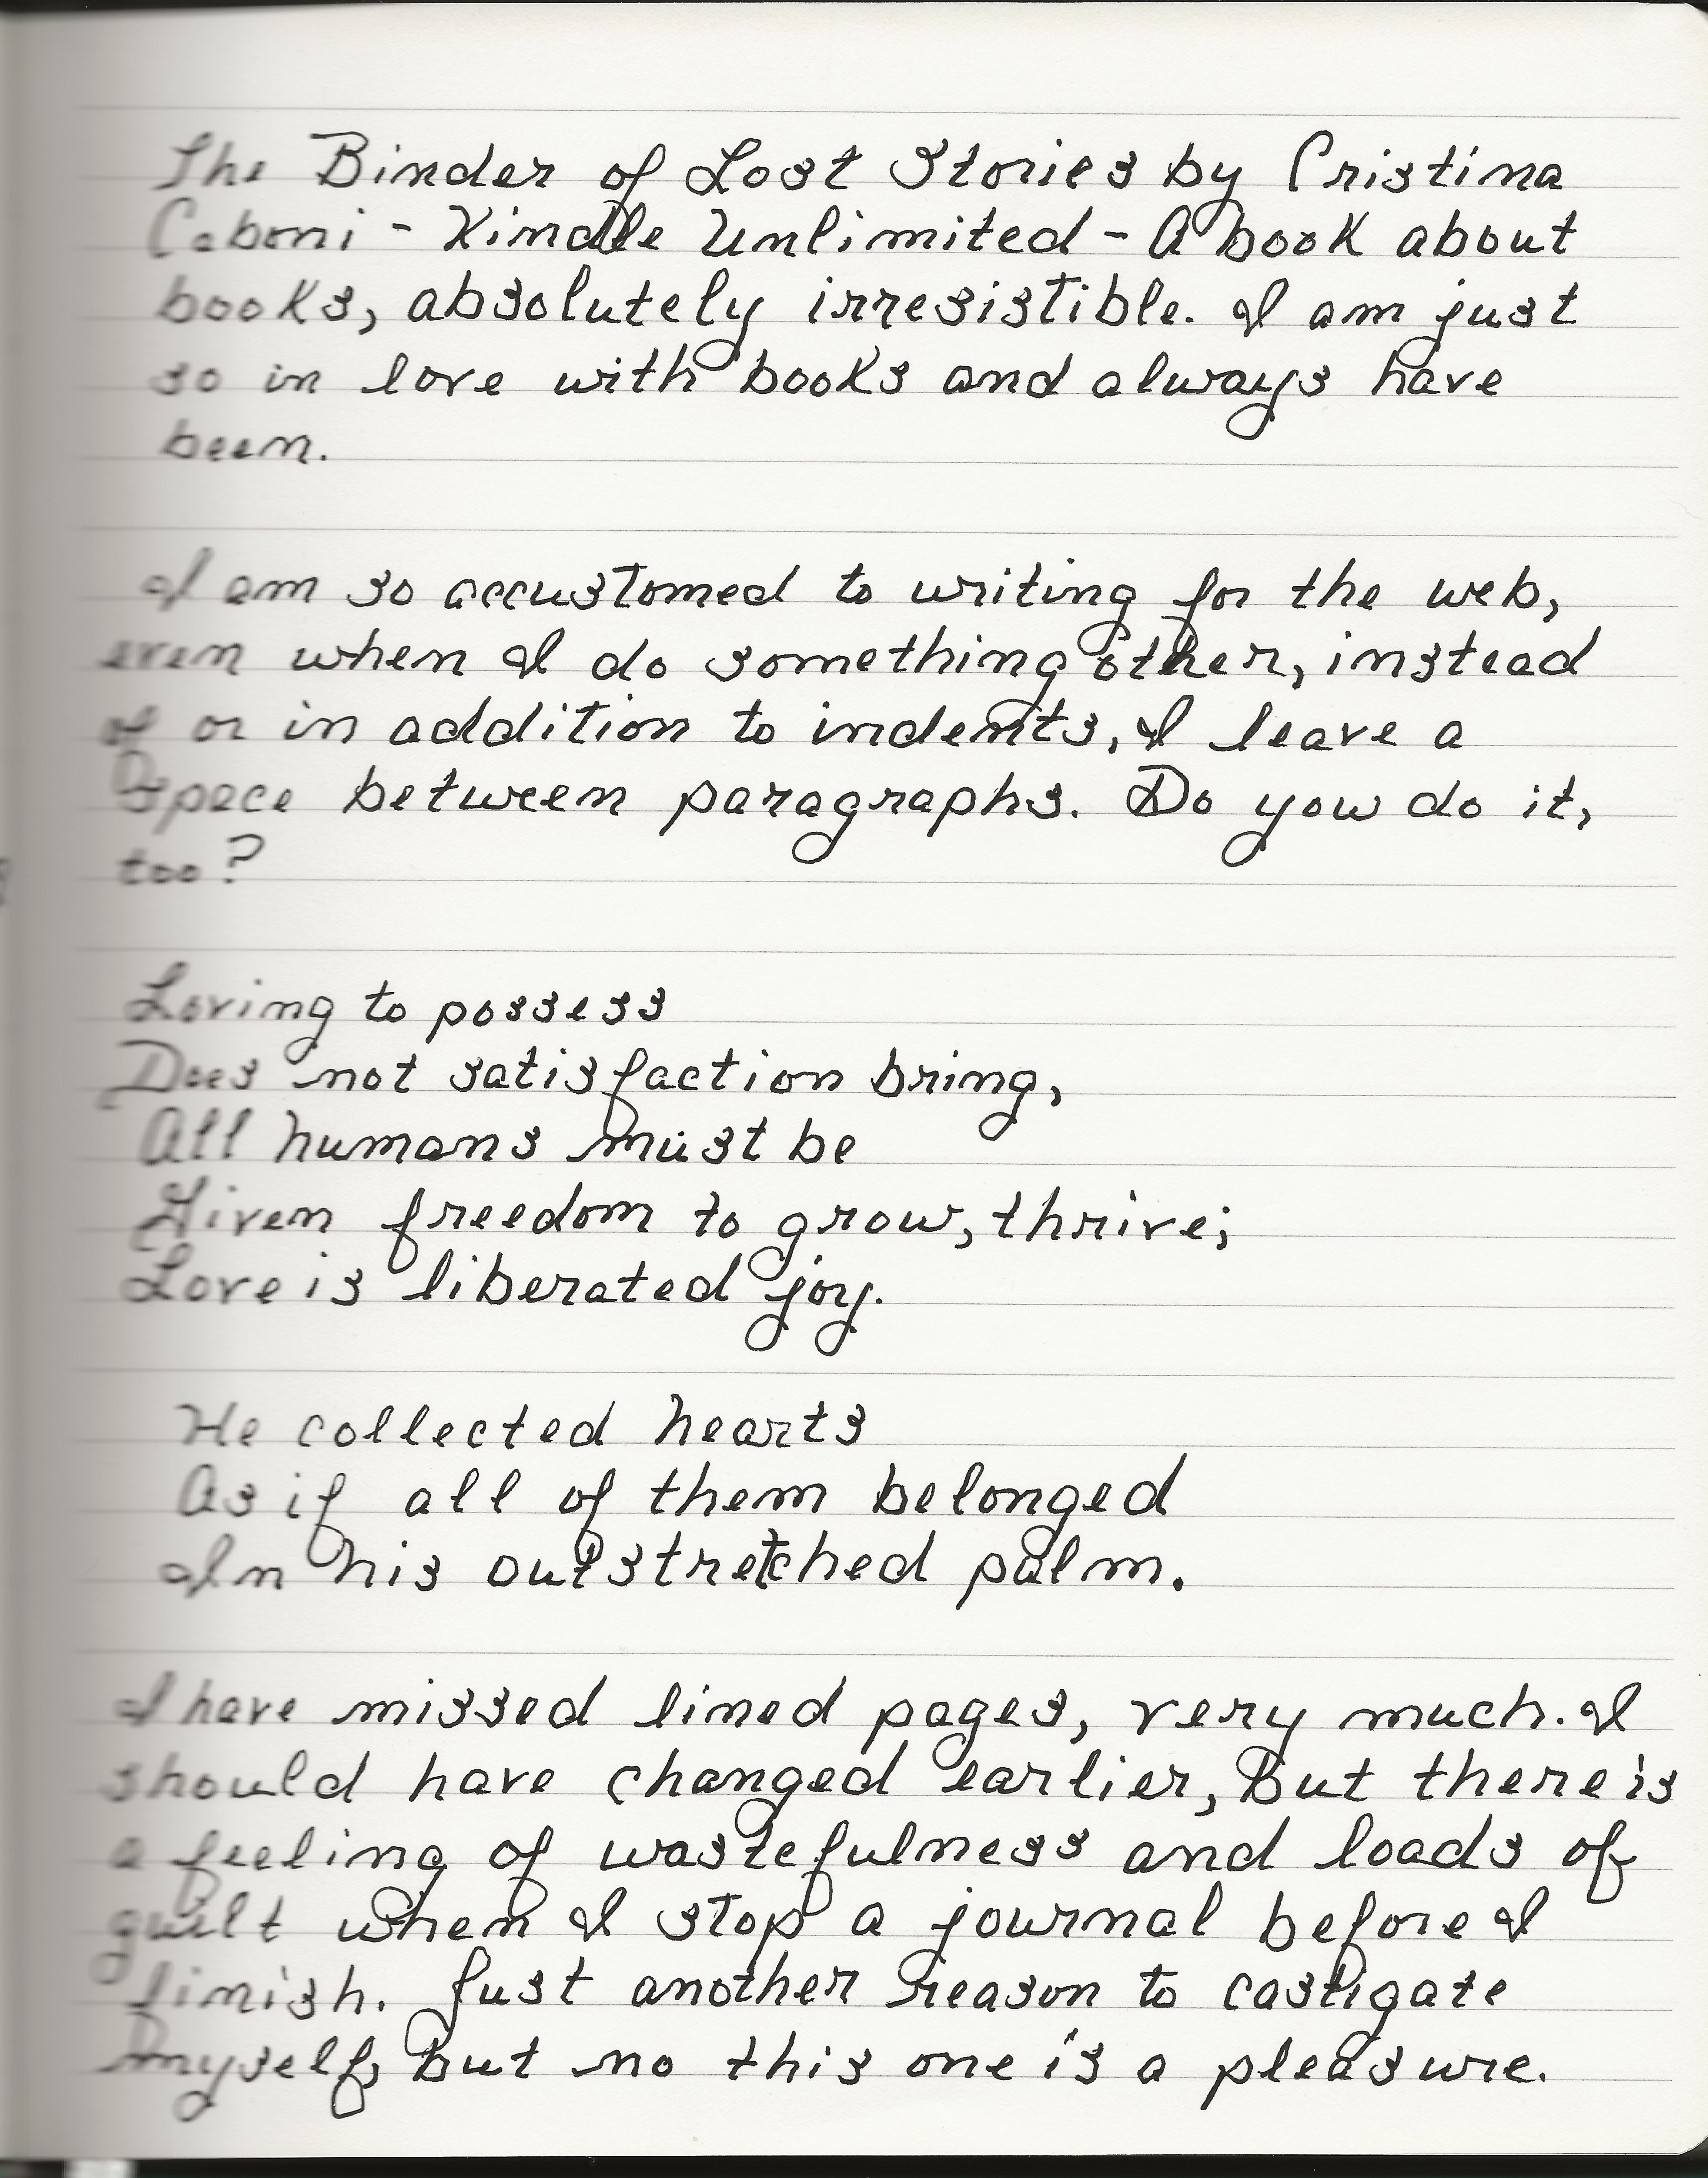 The Binder of Lost Stories by Cristina
Caboni - Kindle Unlimited - A book about
books, absolutely irresistible. I am just
so in love with books and always have
been.
I am so accustomed to writing for the web,
even when I do something other, instead
of or in addition to indents, I leave a
Space between paragraphs. Do you do it,
too?
Loving to possess
Does not satisfaction bring,
All humans must be
Given freedom to grow, thrive;
Love is liberated joy.
He collected hearts
As if all of them belonged
In his outstretched palm.
I have missed lined pages, very much. I
should have changed earlier, But there is
a feeling of wastefulness and loads of
guilt when I stop a journal before I
finish. Just another reason to castigate
myself, But no this one is a pleasure.